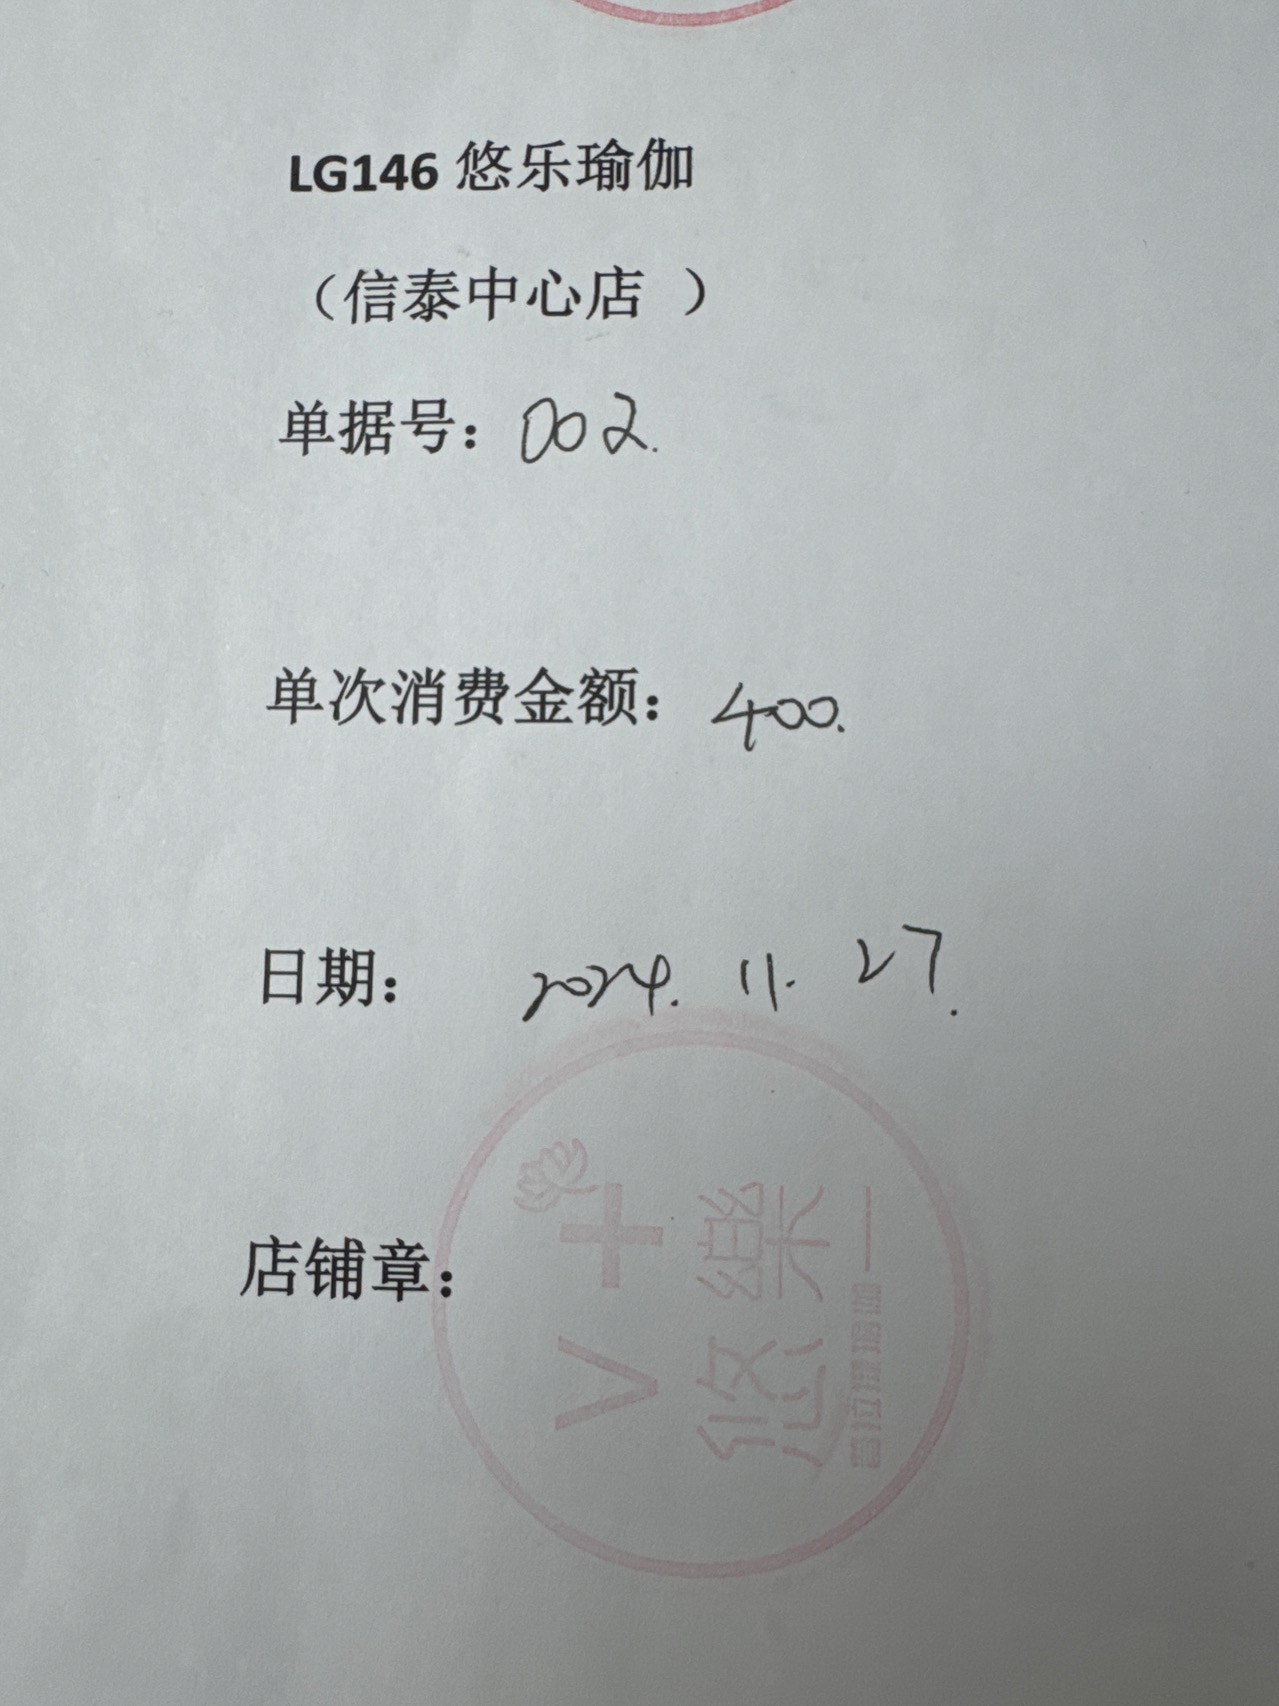 LG146 悠乐瑜伽
（信泰中心店 ）
单据号：002.
单次消费金额：400.
日期： 2024. 11. 27.
店铺章：
V+
悠樂
普拉提瑜伽